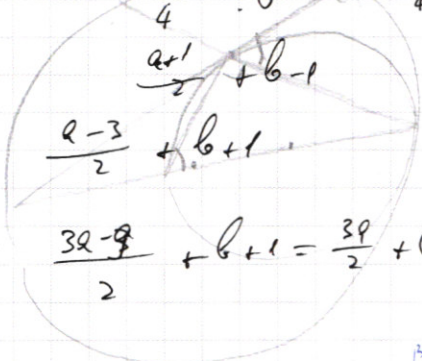 4
a+1/2 + b-1
a-3/2 + b+1
3a-9/2 + b+1 = 39/2 +